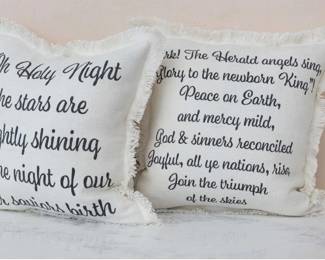 Oh Holy Night
the stars are
ightly shining
he night of our
r saviors birth
rk! The Herald angels sing,
Glory to the newborn King"!
Peace on Earth,
and mercy mild,
God & sinners reconciled
Joyful, all ye nations, rise,
Join the triumph
of the skies